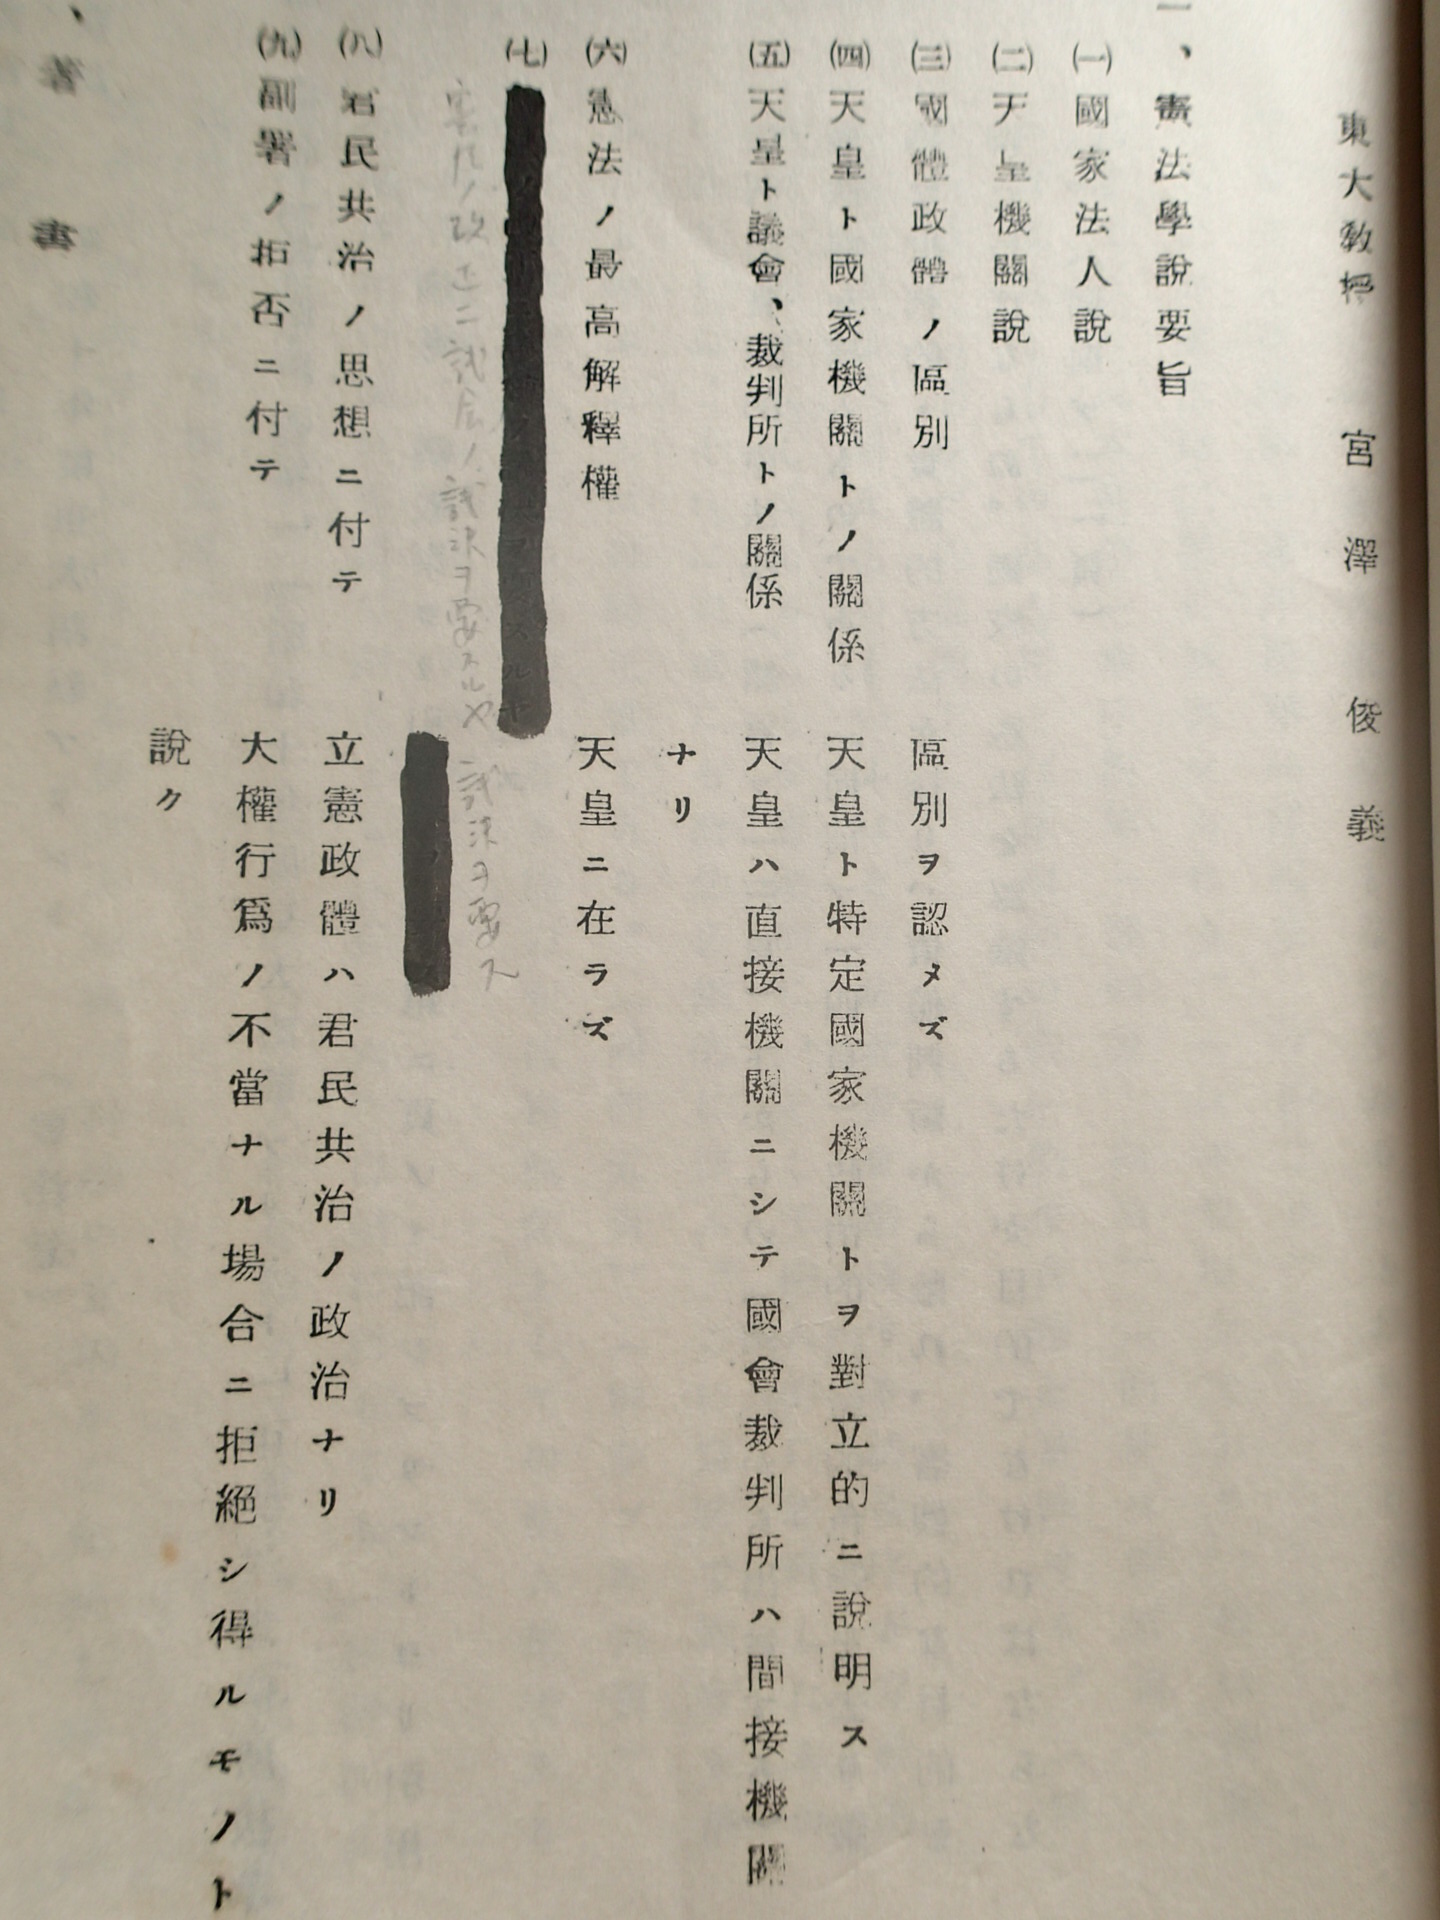 東大教授 宮澤俊義
一、憲法學說要旨
㈠國家法人說
㈡天皇機關說
㈢國體政體ノ區別 區別ヲ認メズ
㈣天皇ト國家機關トノ關係 天皇ト特定國家機關トヲ對立的ニ說明ス
㈤天皇ト議會、裁判所トノ關係 天皇ハ直接機關ニシテ國會裁判所ハ間接機關
ナリ
㈥憲法ノ最高解釋權 天皇ニ在ラズ
㈦
憲法ノ改正ニ議会ノ議決ヲ要スルヤ 議決ヲ要ス
㈧君民共治ノ思想ニ付テ 立憲政體ハ君民共治ノ政治ナリ
㈨副署ノ拒否ニ付テ 大權行爲ノ不當ナル場合ニ拒絕シ得ルモノト
說ク
、著書